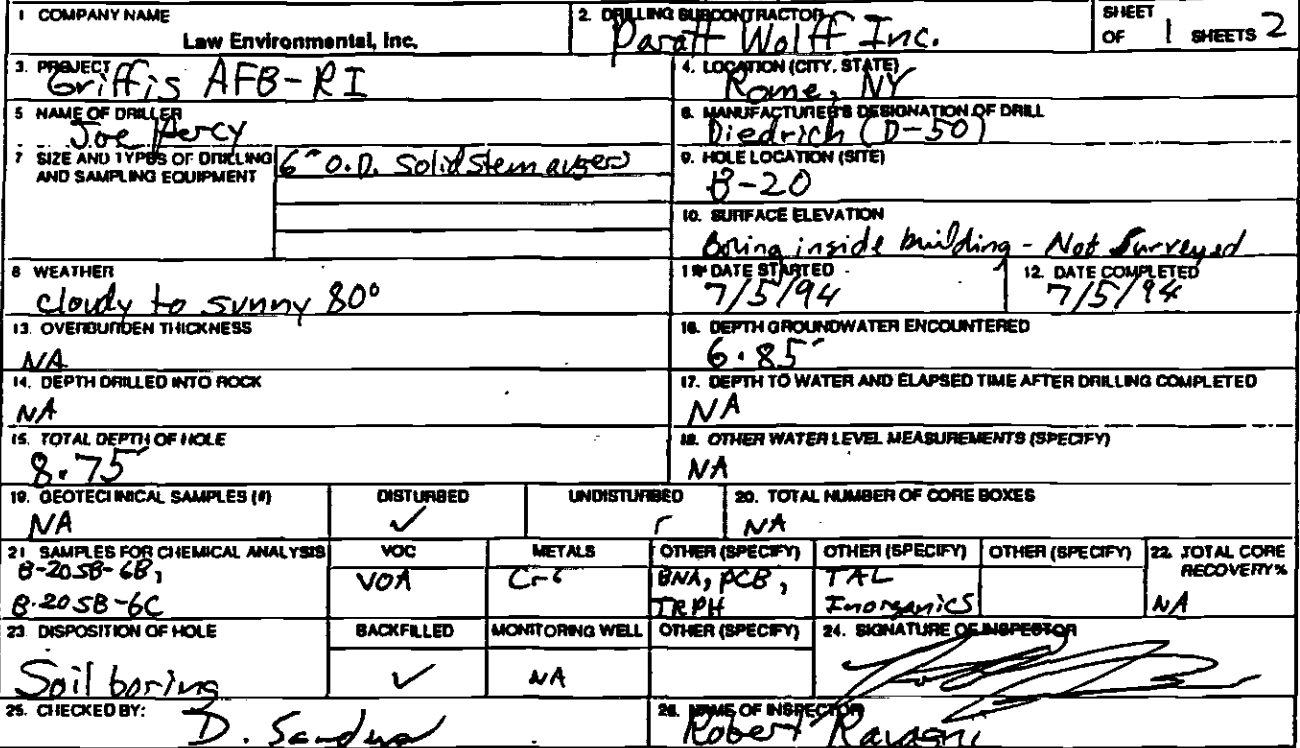 1 COMPANY NAME
Law Environmental, Inc.
2. DRILLING SUBCONTRACTOR
Paratt Wolff Inc.
SHEET
OF 1 SHEETS 2
3. PROJECT
Griffis AFB-RI
4. LOCATION (CITY, STATE)
Rome, NY
5 NAME OF DRILLER
Joe Percy
6. MANUFACTURER'S DESIGNATION OF DRILL
Diedrich (D-50)
7 SIZE AND TYPES OF DRILLING
AND SAMPLING EQUIPMENT
6" O.D. Solid Stem augers
9. HOLE LOCATION (SITE)
B-20
10. SURFACE ELEVATION
Boring inside building - Not Surveyed
8 WEATHER
cloudy to sunny 80°
11. DATE STARTED
7/5/94
12. DATE COMPLETED
7/5/94
13. OVERBURDEN THICKNESS
NA
16. DEPTH GROUNDWATER ENCOUNTERED
6.85'
14. DEPTH DRILLED INTO ROCK
NA
17. DEPTH TO WATER AND ELAPSED TIME AFTER DRILLING COMPLETED
NA
15. TOTAL DEPTH OF HOLE
8.75'
18. OTHER WATER LEVEL MEASUREMENTS (SPECIFY)
NA
19. GEOTECHNICAL SAMPLES (#)
NA
DISTURBED
✓
UNDISTURBED
20. TOTAL NUMBER OF CORE BOXES
NA
21. SAMPLES FOR CHEMICAL ANALYSIS
B-20SB-6B,
B-20SB-6C
VOC
VOA
METALS
Cr-6
OTHER (SPECIFY)
BNA, PCB,
TRPH
OTHER (SPECIFY)
TAL
Inorganics
OTHER (SPECIFY)
22. TOTAL CORE
RECOVERY%
NA
23. DISPOSITION OF HOLE
Soil boring
BACKFILLED
✓
MONITORING WELL
NA
OTHER (SPECIFY)
24. SIGNATURE OF INSPECTOR
25. CHECKED BY:
D.
26. NAME OF INSPECTOR
Robert